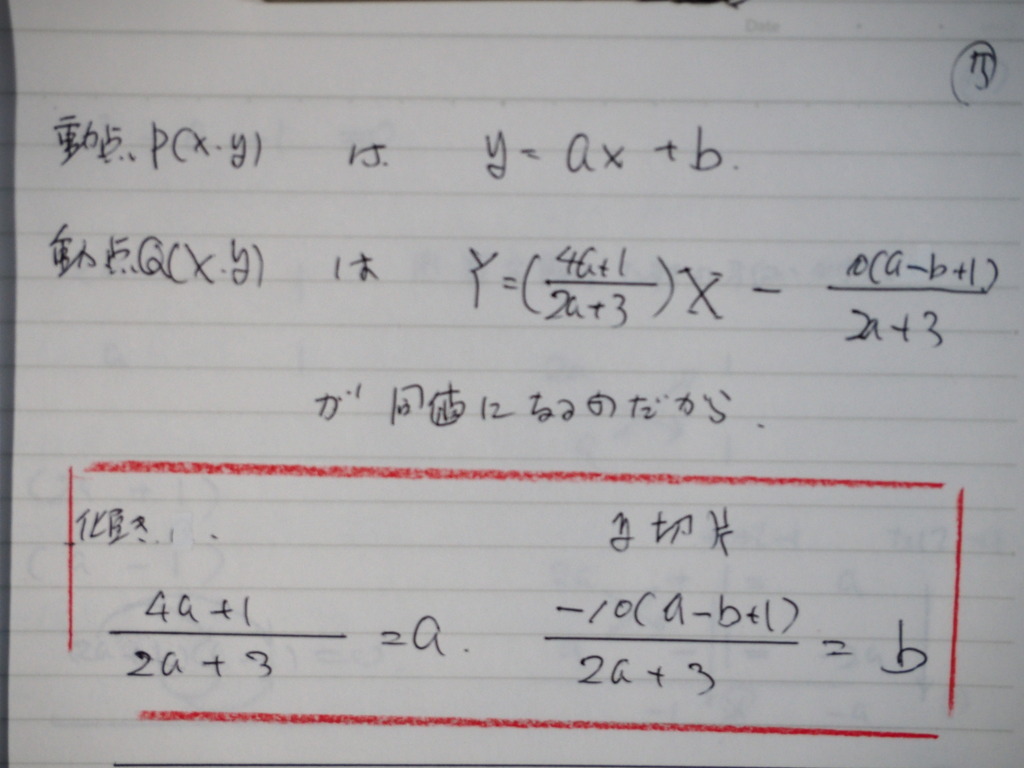 Date
動点、P(x.y) は y = ax + b.
動点Q(X.y) は Y=(\frac{4a+1}{2a+3})X - \frac{10(a-b+1)}{2a+3}
が 同値になるのだから.
傾き. y切片
\frac{4a+1}{2a+3} = a. \frac{-10(a-b+1)}{2a+3} = b